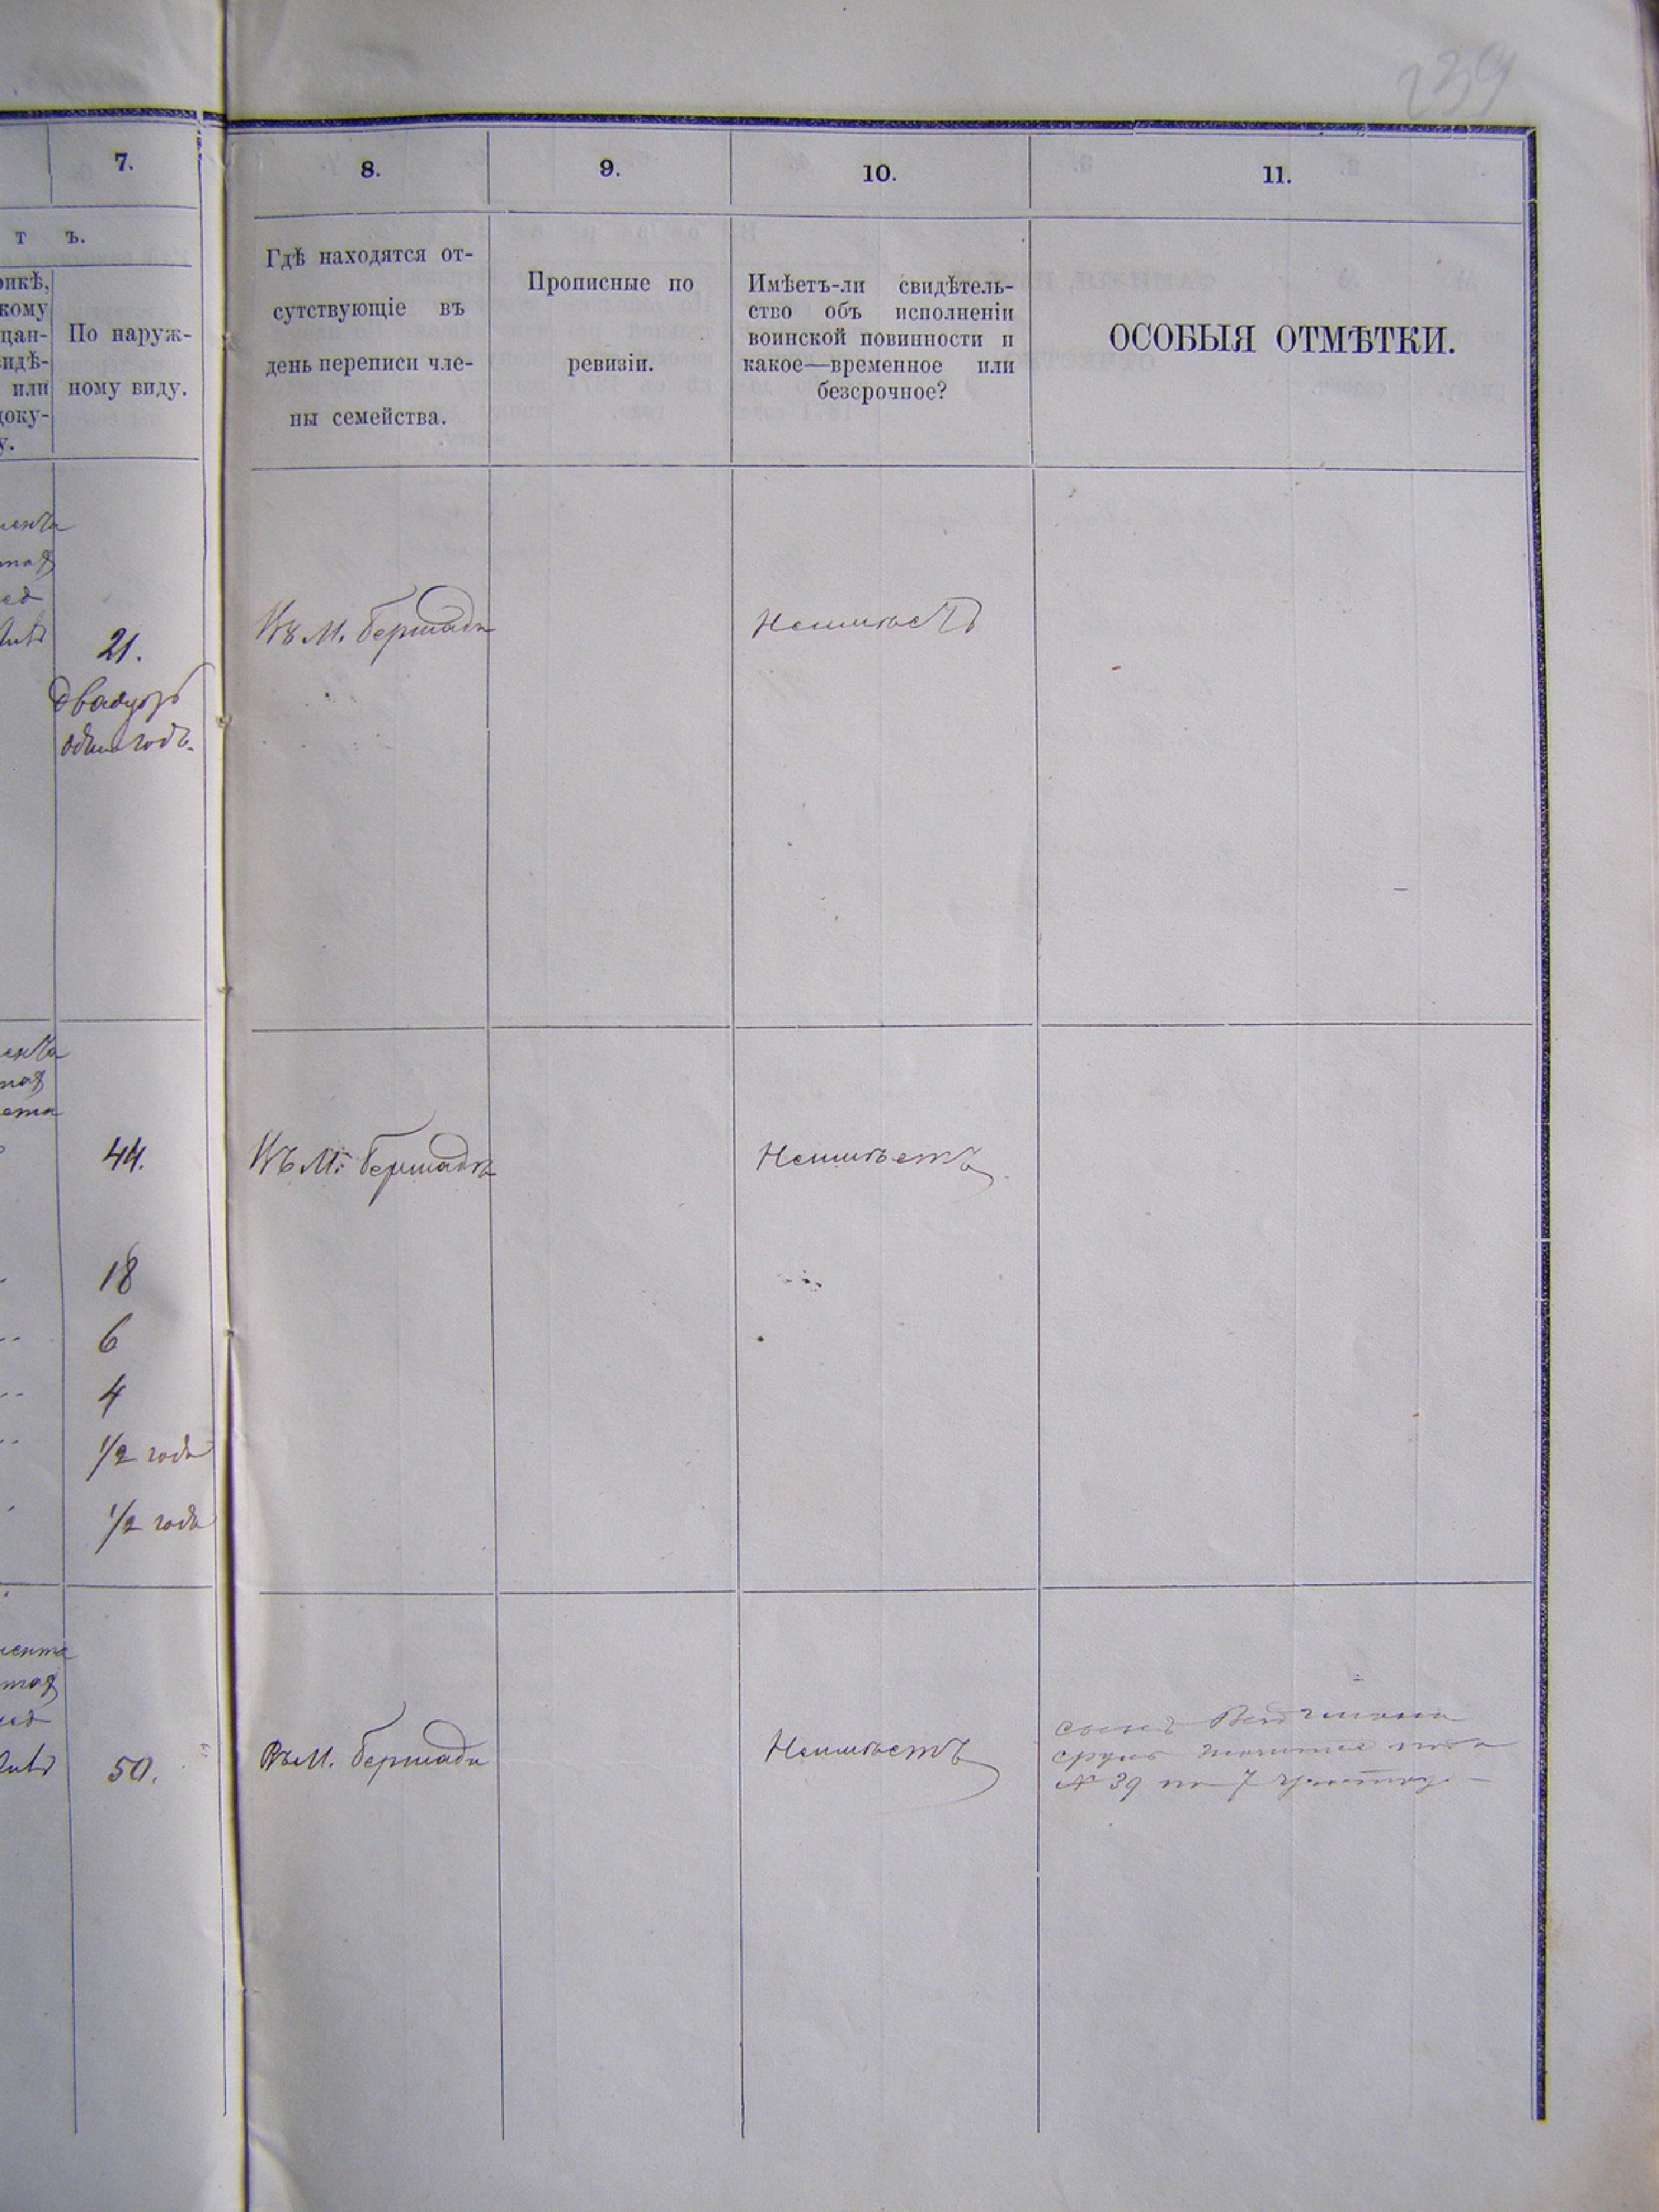 239
7.
8.
9.
10.
11.
т ъ.
По наруж-
ному виду.
Гдѣ находятся от-
сутствующіе въ
день переписи чле-
ны семейства.
Прописные по
ревизіи.
Имѣетъ-ли свидѣтель-
ство объ исполненіи
воинской повинности и
какое—временное или
безсрочное?
ОСОБЫЯ ОТМѢТКИ.
21.
двадцать
одинъ годъ.
Въ М. Бершади
Неимѣетъ
44.
Въ М. Бершадѣ
Неимѣетъ
18
6
4
1/2 года
1/2 года
50.
Въ М. Бершади
Неимѣетъ
сынъ
Сруль
№ 39 по 7 участку